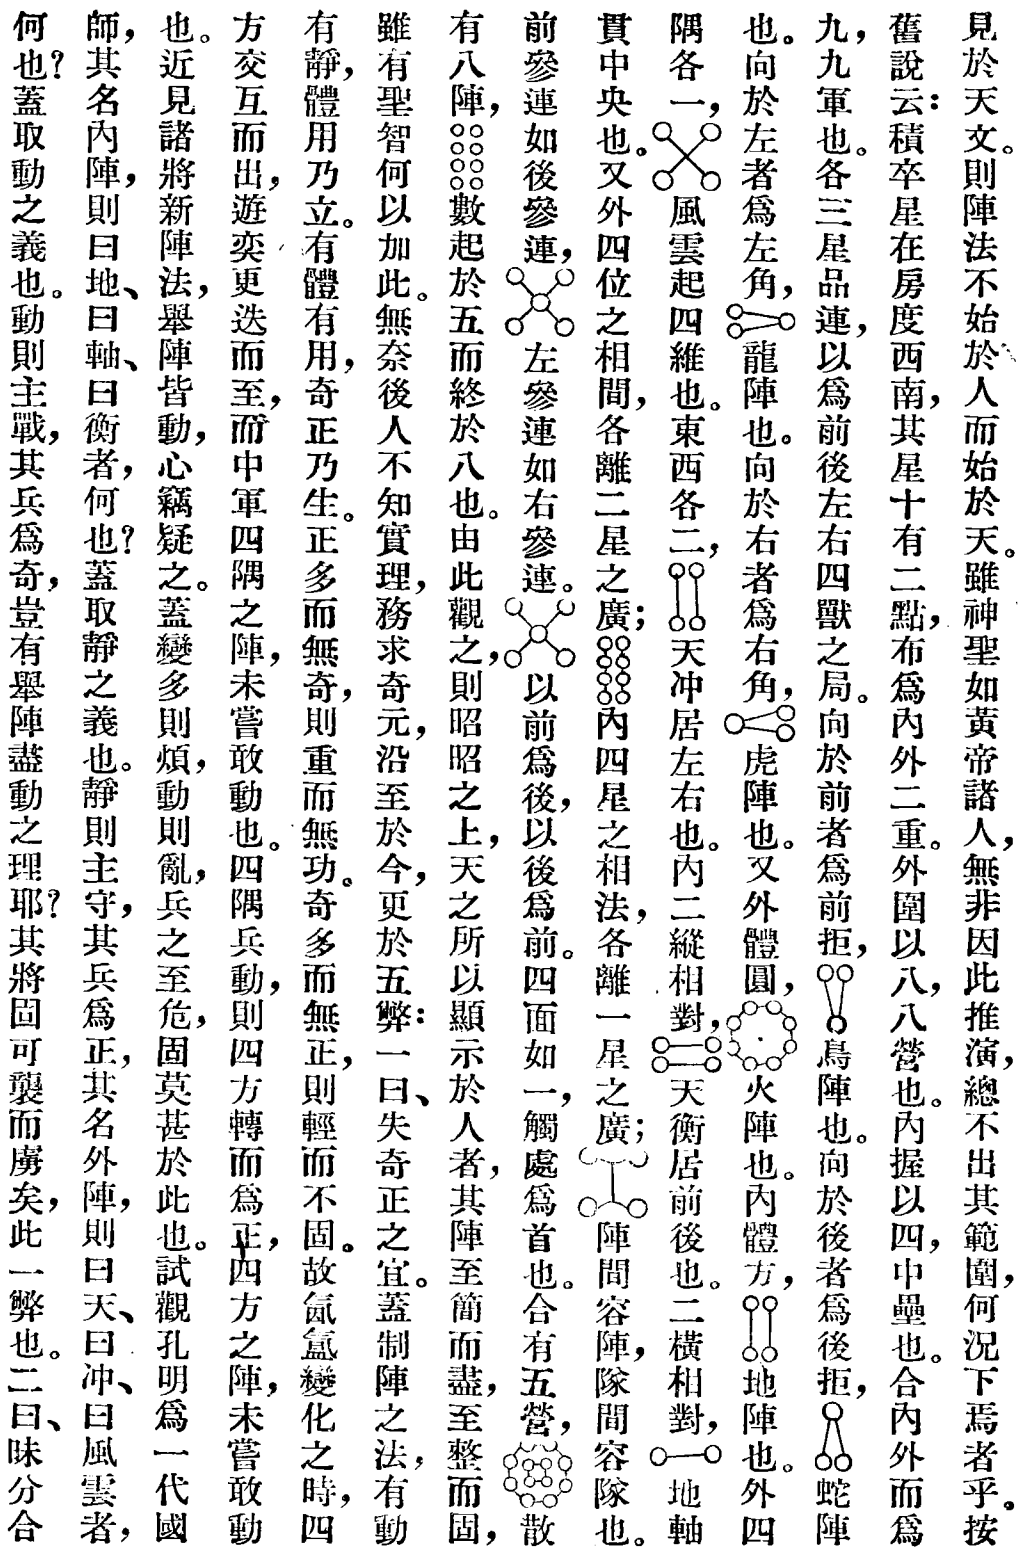 見於天文。則陣法不始於人而始於天。雖神聖如黃帝諸人，無非因此推演，總不出其範圍，何况下焉者乎。按
舊說云：積卒星在房度西南，其星十有二點，布爲內外二重。外圍以八，八營也。內握以四，中壘也。合內外而爲
九，九軍也。各三星品連，以爲前後左右四獸之局。向於前者爲前拒，鳥陣也。向於後者爲後拒，蛇陣
也。向於左者爲左角，龍陣也。向於右者爲右角，虎陣也。又外體圓，火陣也。內體方，地陣也。外四
隅各一，風雲起四維也。東西各二，天冲居左右也。內二縱相對，天衡居前後也。二橫相對，地軸
貫中央也。又外四位之相間，各離二星之廣；內四星之相法，各離一星之廣；陣間容陣，隊間容隊也。
前參連如後參連，左參連如右參連。以前爲後，以後爲前。四面如一，觸處爲首也。合有五營，散
有八陣，數起於五而終於八也。由此觀之，則昭昭之上，天之所以顯示於人者，其陣至簡而盡，至整而固，
雖有聖智何以加此。無奈後人不知實理，務求奇元，沿至於今，更於五弊：一曰、失奇正之宜。蓋制陣之法，有動
有靜，體用乃立。有體有用，奇正乃生。正多而無奇，則重而無功。奇多而無正，則輕而不固。故氤氳變化之時，四
方交互而出，遊奕更迭而至，而中軍四隅之陣，未嘗敢動也。四隅兵動，則四方轉而爲正，四方之陣，未嘗敢動
也。近見諸將新陣法，舉陣皆動，心竊疑之。蓋變多則煩，動則亂，兵之至危，固莫甚於此也。試觀孔明爲一代國
師，其名內陣，則曰地、曰軸、曰衡者，何也？蓋取靜之義也。靜則主守，其兵爲正，其名外陣，則曰天、曰冲、曰風雲者，
何也？蓋取動之義也。動則主戰，其兵爲奇，豈有舉陣盡動之理耶？其將固可襲而虜矣，此一弊也。二曰、昧分合